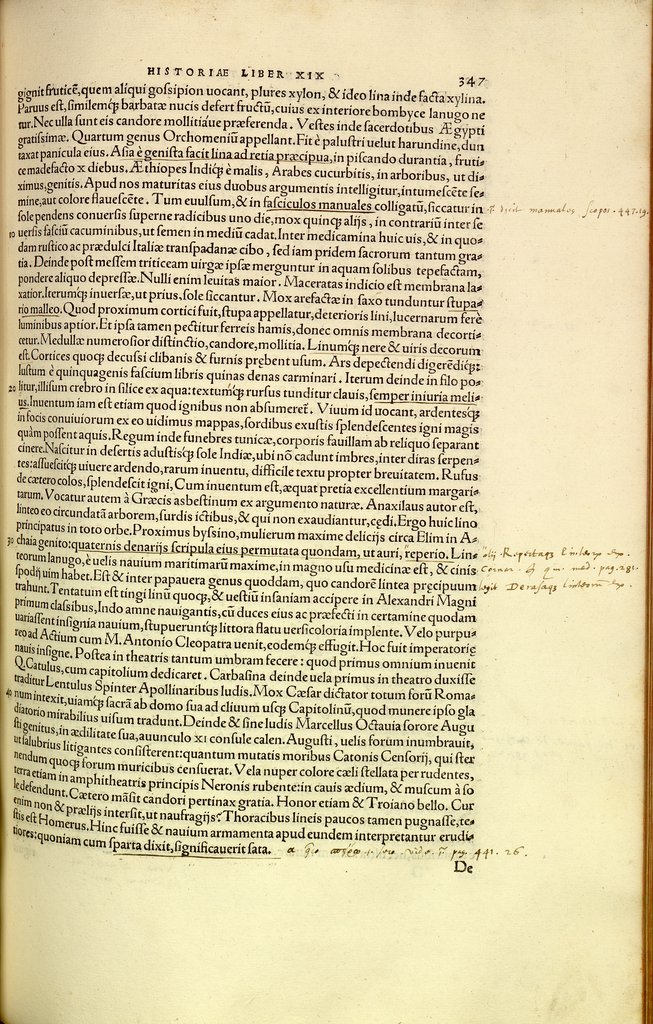 HISTORIAE LIBER XIX
347
gignit fruticẽ, quem aliqui gossipion uocant, plures xylon, & ideo lina inde facta xylina.
Paruus est, similemq́; barbatæ nucis defert fructũ, cuius ex interiore bombyce lanugo ne
tur. Nec ulla sunt eis candore mollitiáue præferenda. Vestes inde sacerdotibus Ægypti
gratissimæ. Quartum genus Orchomeniũ appellant. Fit è palustri uelut harundine, dun
taxat panicula eius. Asia è genista facit lina ad retia præcipua, in piscando durantia, fruti=
ce madefacto x diebus. Æthiopes Indiq́; è malis, Arabes cucurbitis, in arboribus, ut di=
ximus, genitis. Apud nos maturitas eius duobus argumentis intelligitur, intumescẽte se=
mine, aut colore flauescẽte. Tum euulsum, & in fasciculos manuales colligatũ, siccatur in
legit manualos scopos. 447.19.
sole pendens conuersis superne radicibus uno die, mox quinq́; alijs, in contrariũ inter se
10 uersis fasciũ cacuminibus, ut semen in mediũ cadat. Inter medicamina huic uis, & in quo=
dam rustico ac prædulci Italiæ transpadanæ cibo, sed iam pridem sacrorum tantum gra=
tia. Deinde post messem triticeam uirgæ ipsæ merguntur in aquam solibus tepefactam,
pondere aliquo depressæ. Nulli enim leuitas maior. Maceratas indicio est membrana la=
xatior. Iterumq́; inuersæ, ut prius, sole siccantur. Mox arefactæ in saxo tunduntur stupa=
rio malleo. Quod proximum cortici fuit, stupa appellatur, deterioris lini, lucernarum ferè
luminibus aptior. Et ipsa tamen pectitur ferreis hamis, donec omnis membrana decorti=
cetur. Medullæ numerosior distinctio, candore, mollitia. Linumq́; nere & uiris decorum
est. Cortices quoq́; decussi clibanis & furnis prębent usum. Ars depectendi digerẽdiq́;:
iustum è quinquagenis fascium libris quinas denas carminari. Iterum deinde in filo po=
20 litur, illisum crebro in silice ex aqua: textumq́; rursus tunditur clauis, semper iniuria meli=
us. Inuentum iam est etiam quod ignibus non absumeret̃. Viuum id uocant, ardentesq́;
in focis conuiuiorum ex eo uidimus mappas, sordibus exustis splendescentes igni magis
quàm possent aquis. Regum inde funebres tunicæ, corporis fauillam ab reliquo separant
cinere. Nascitur in desertis adustisq́; sole Indiæ, ubi nõ cadunt imbres, inter diras serpen=
tes: assuescitq́; uiuere ardendo, rarum inuentu, difficile textu propter breuitatem. Rufus
de cætero colos, splendescit igni, Cum inuentum est, æquat pretia excellentium margari=
tarum. Vocatur autem à Græcis asbestinum ex argumento naturæ. Anaxilaus autor est,
linteo eo circundatã arborem, surdis ictibus, & qui non exaudiantur, cędi. Ergo huic lino
principatus in toto orbe. Proximus byssino, mulierum maxime delicijs circa Elim in A=
30 chaia genito: quaternis denarijs scripula eius permutata quondam, ut auri, reperio. Lin=
alij. Repertaq; linteorũ
teorum lanugo, è uelis nauium maritimarũ maxime, in magno usu medicinæ est, & cinis
med. pag. 281.
spodij uim habet. Est & inter papauera genus quoddam, quo candorẽ lintea præcipuum
legit Derasaq; linteorum
trahunt. Tentatum est tingi linũ quoq́;, & uestiũ insaniam accipere in Alexandri Magni
primum classibus, Indo amne nauigantis, cũ duces eius ac præfecti in certamine quodam
uariassent insignia nauium, stupueruntq́; littora flatu uersicoloria implente. Velo purpu=
reo ad Actium cum M. Antonio Cleopatra uenit, eodemq́; effugit. Hoc fuit imperatoriæ
nauis insigne. Postea in theatris tantum umbram fecere: quod primus omnium inuenit
Q. Catulus, cum capitolium dedicaret. Carbasina deinde uela primus in theatro duxisse
traditur Lentulus Spinter Apollinaribus ludis. Mox Cæsar dictator totum forũ Roma=
40 num intexit, uiamq́; sacrã ab domo sua ad cliuum usq́; Capitolinũ, quod munere ipso gla
diatorio mirabilius uisum tradunt. Deinde & sine ludis Marcellus Octauia sorore Augu
sti genitus, in ædilitate sua, auunculo XI consule calen. Augusti, uelis forum inumbrauit,
ut salubrius litigantes consisterent: quantum mutatis moribus Catonis Censorij, qui ster
nendum quoq́; forum muricibus censuerat. Vela nuper colore cæli stellata per rudentes,
terra etiam in amphitheatris principis Neronis rubente: in cauis ædium, & muscum à so
le defendunt. Cætero mãsit candori pertinax gratia. Honor etiam & Troiano bello. Cur
enim non & prælijs intersit, ut naufragijs? Thoracibus lineis paucos tamen pugnasse, te=
stis est Homerus. Hinc fuisse & nauium armamenta apud eundem interpretantur erudi=
tiores: quoniam cum sparta dixit, significauerit sata.
pag. 441. 26.
De